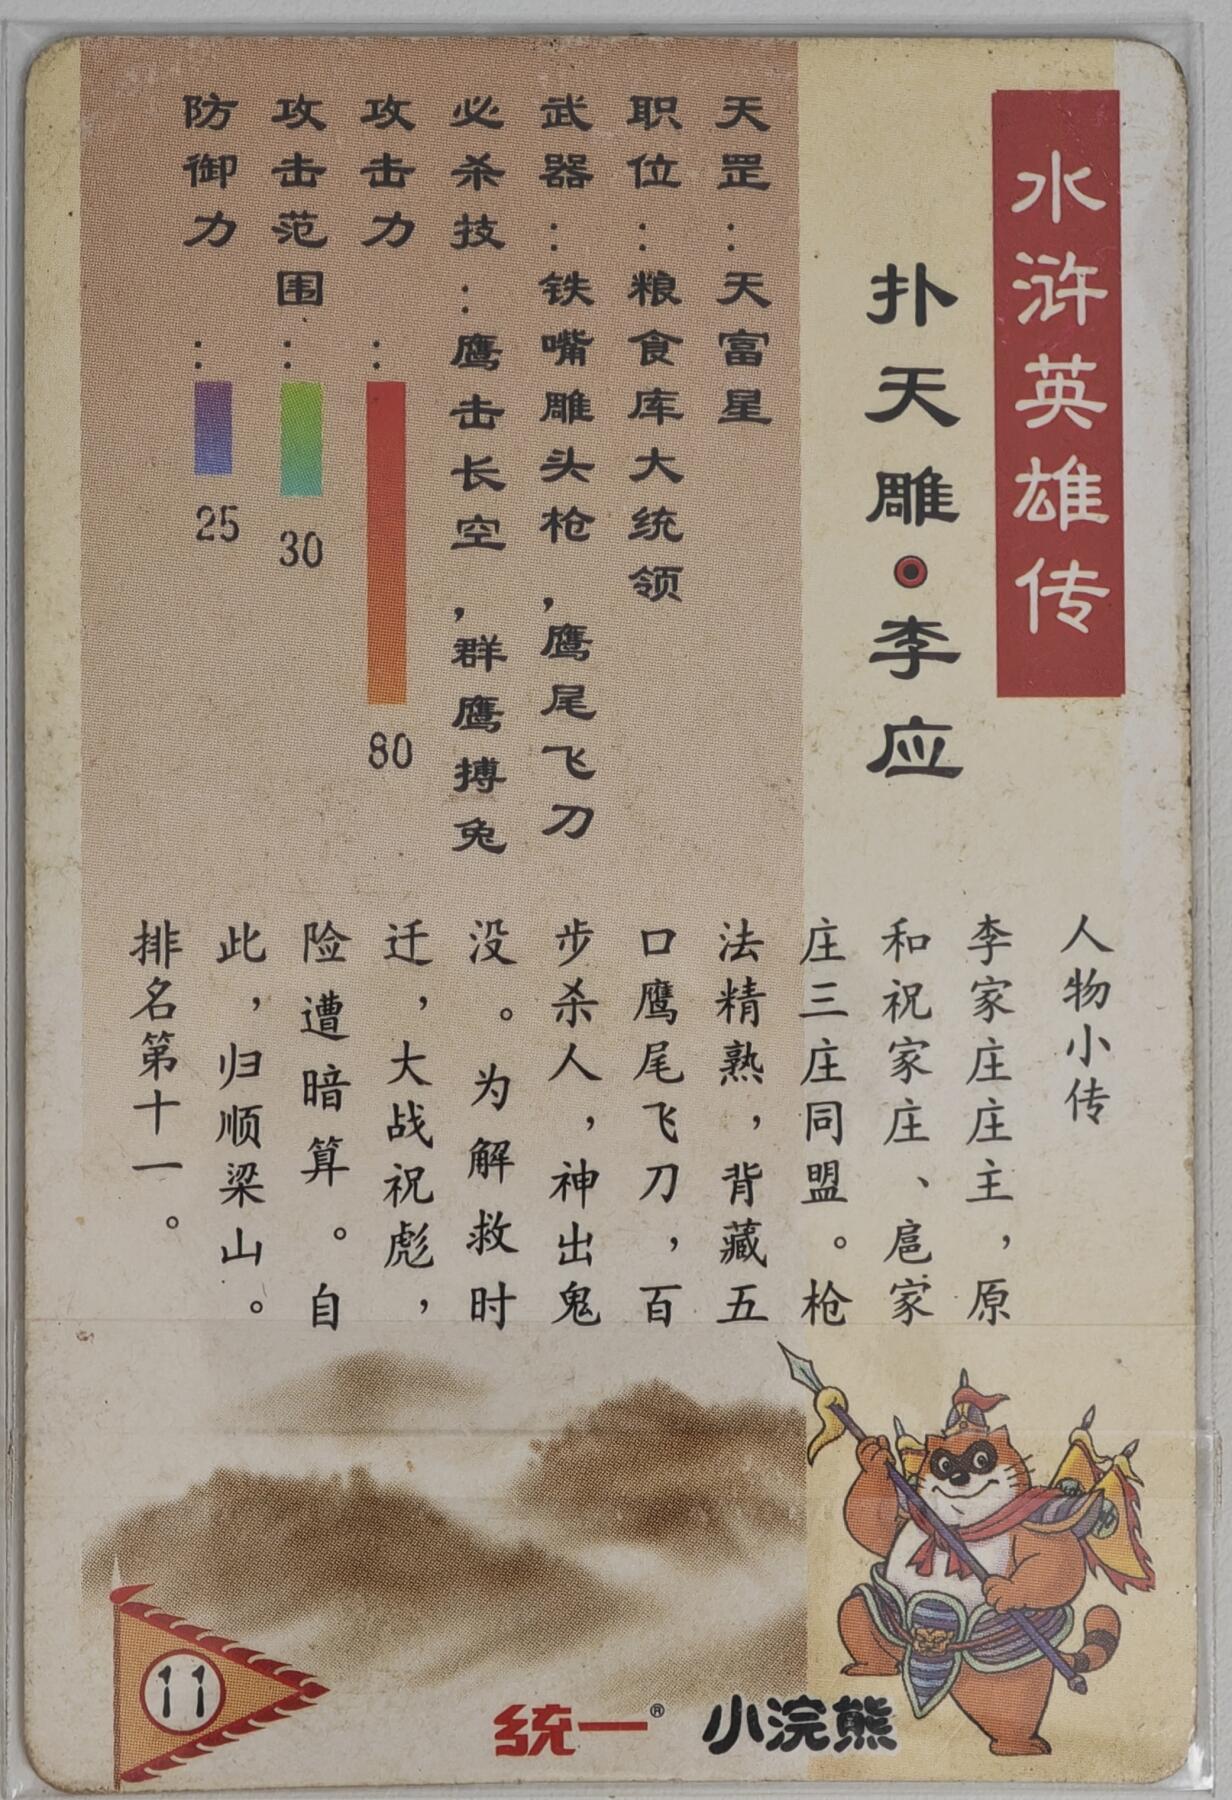 水浒英雄传
扑天雕·李应
天罡：天富星
职位：粮食库大统领
武器：铁嘴雕头枪，鹰尾飞刀
必杀技：鹰击长空，群鹰搏兔
攻击力：80
攻击范围：30
防御力：25
人物小传
李家庄庄主，原
和祝家庄、扈家
庄三庄同盟。枪
法精熟，背藏五
口鹰尾飞刀，百
步杀人，神出鬼
没。为解救时
迁，大战祝彪，
险遭暗算。自
此，归顺梁山。
排名第十一。
11
统一® 小浣熊